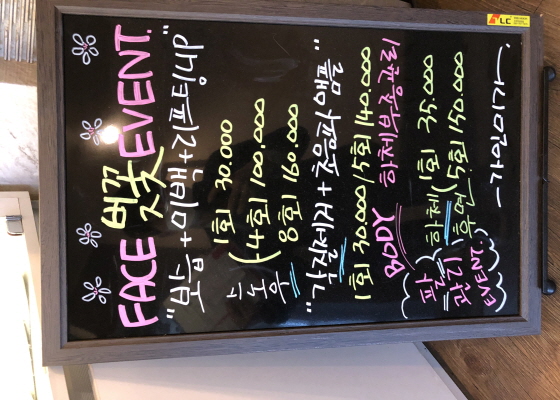 FACE 벚꽃 EVENT.
"보습+미백+리프팅up"
1회 30.000
4회 100.000
8회 160.000
"각질제거+초음파앰플"
1회 30.000/5회 140.000
BODY 하체부종관리
하체 1회 35.000
5회 150.000
관리
EVENT.